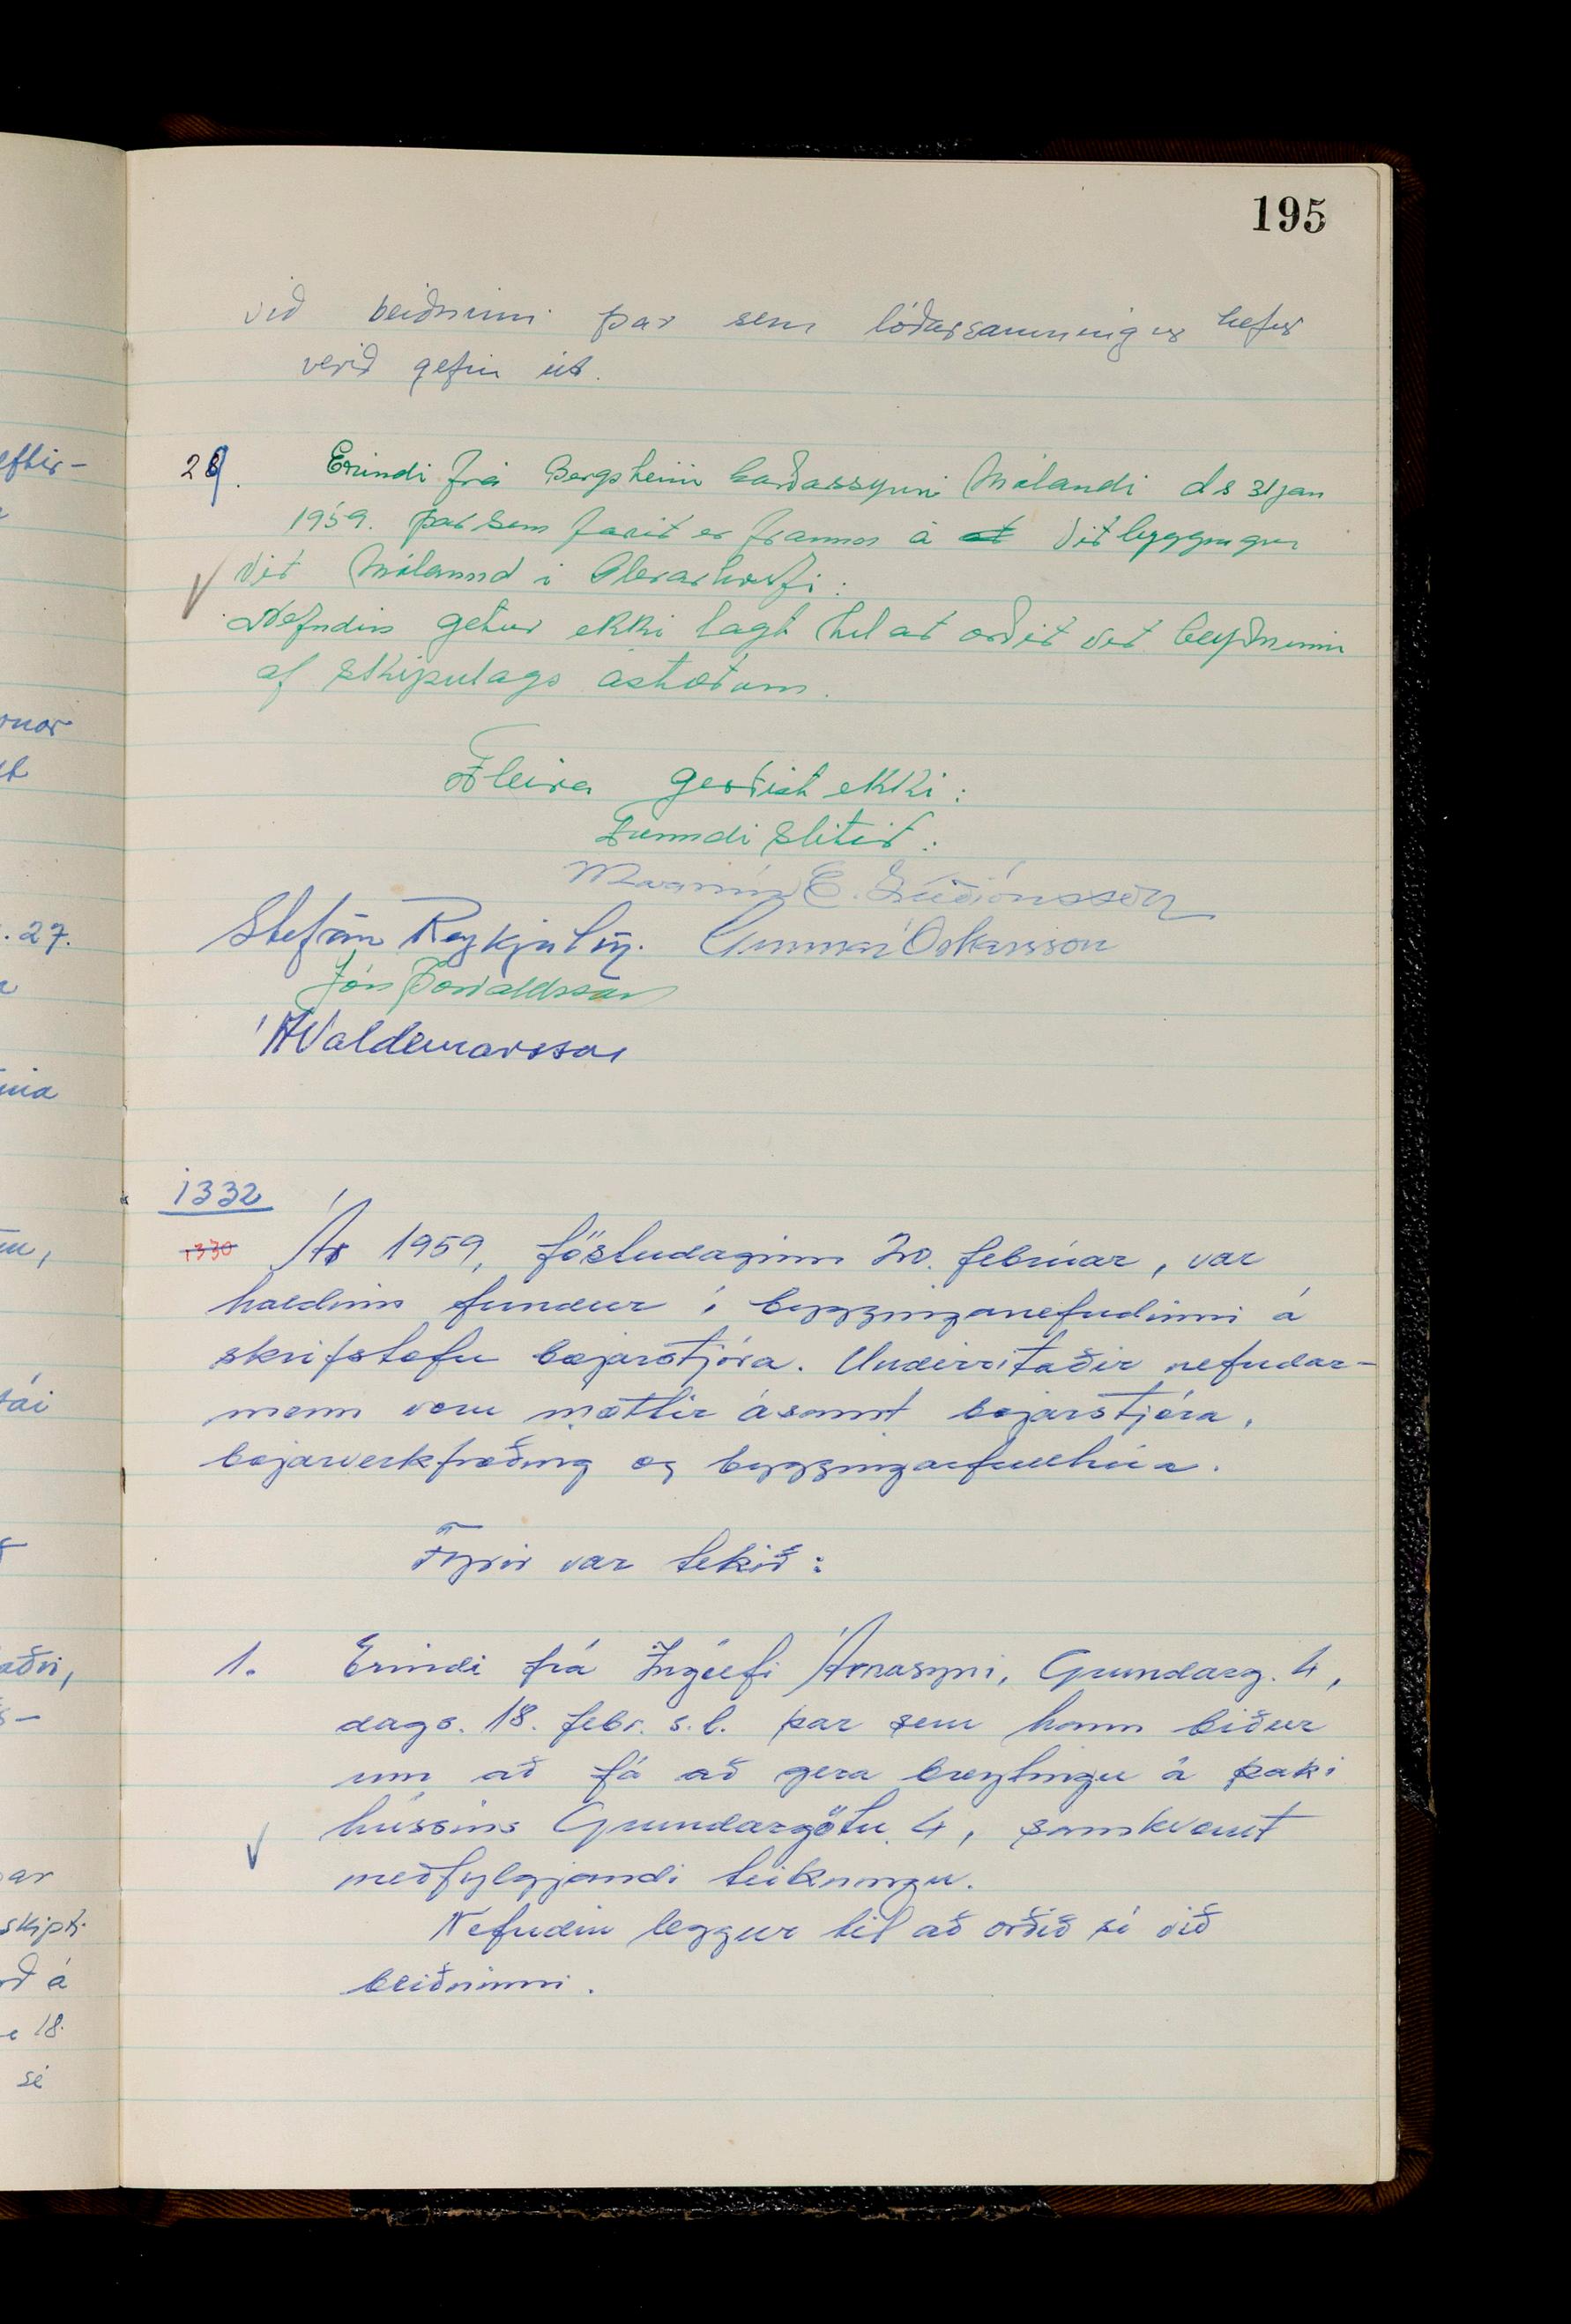 195
við beiðninni þar sem lóðarsamningur hefur
verið gefin út.
28. Erindi frá Bergsteini Garðassyni Málandi ds 31 jan
1959. þar sem farit er framm á at viðbyggingu
vit Málannd i Glerarhverfi.
Nefndin getur ekki lagt til at orðit vet beyðninni
af skipulags ástætum.
Fleira gerðist ekki:
Funndi slitit.
Marinó E. Guðjónsson
Stefán Reykjalín. Gunnar Óskarsson
Jón Þorvaldsson
Valdemarsson
1332
1330 Ár 1959, föstudaginn 20. febrúar, var
haldinn fundur í bygginganefndinni á
skrifstofu bæjarstjóra. Undirritaðir nefndar-
menn voru mættir ásamt bæjarstjóra,
bæjarverkfræðing og byggingarfulltrúa.
Fyrir var tekið:
1. Erindi frá Ingólfi Árnasyni, Grundarg. 4,
dags. 18. febr. s.l. þar sem hann biður
um að fá að gera breytingu á þaki
hússins Grundargötu 4, samkvæmt
meðfylgjandi teikningu.
Nefndin leggur til að orðið sé við
beiðninni.
eftir-
. 27.
skipt.
18.
sé